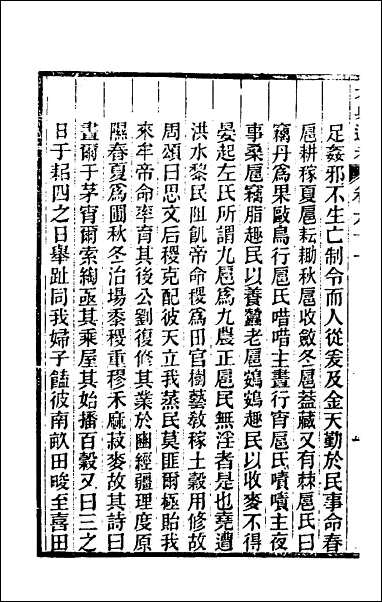 足姦邪不生亡制令而人從爰及金天勤於民事命春
扈耕稼夏扈耘耡秋扈收斂冬扈蓋藏又有棘扈氏曰
竊丹爲果敺鳥行扈氏唶唶主晝行宵扈氏嘖嘖主夜
事桑扈竊脂趣民以養蠶老扈鷃鷃趣民以收麥不得
晏起左氏所謂九扈爲九農正扈民無淫者是也堯遭
洪水黎民阻飢帝命稷爲田官樹藝敎稼土穀用修故
周頌曰思文后稷克配彼天立我蒸民莫匪爾極貽我
來牟帝命率育其後公劉復修其業於豳經疆理度原
隰春夏爲圃秋冬治場黍稷重穋禾麻菽麥故其詩曰
晝爾于茅宵爾索綯亟其乘屋其始播百穀又曰三之
日于耜四之日舉趾同我婦子饁彼南畝田畯至喜田